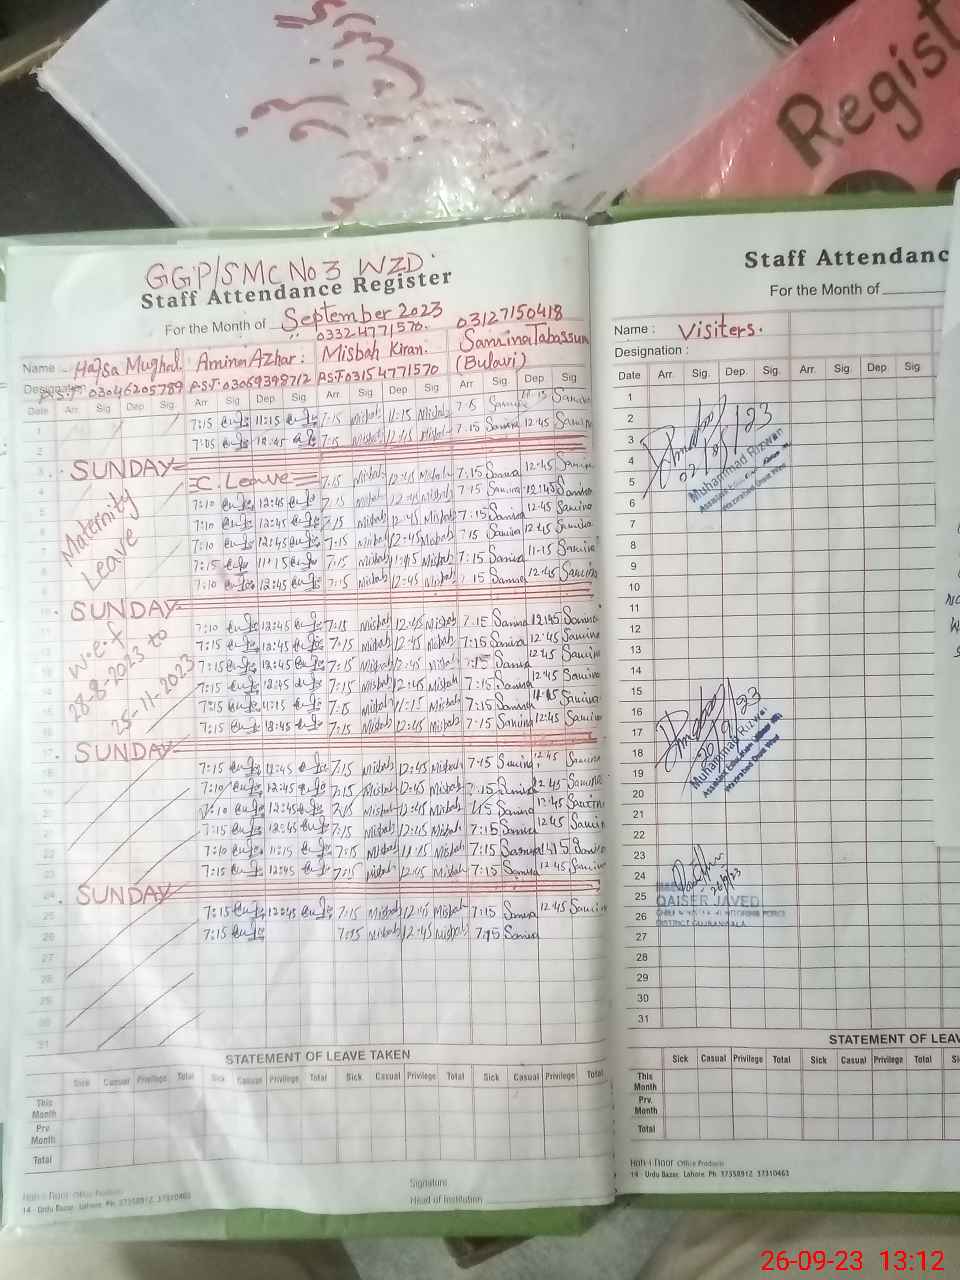 Regist
GGP/SMC No 3 WZD.
Staff Attendance Register
For the Month of September 2023
03324771570. 03127150418
Name Hafsa Mughal. Amina Azhar: Misbah Kiran. Samina Tabassum
Designation P.S.T 03046205789 P.S.T 03069398712 P.S.T 03154771570 (Bulavi)
Date Arr. Sig. Dep. Sig. Arr. Sig. Dep. Sig. Arr. Sig. Dep. Sig. Arr. Sig. Dep. Sig.
1 7:15 11:15 7:15 Misbah 11:15 Misbah 7:15 Samina 11:15 Samina
2 7:05 12:45 7:15 Misbah 12:45 Misbah 7:15 Samina 12:45 Samina
3 SUNDAY
4 C. Leave 7:15 Misbah 12:45 Misbah 7:15 Samina 12:45 Samina
5 7:10 12:45 7:15 Misbah 12:45 Misbah 7:15 Samina 12:45 Samina
6 7:10 12:45 7:15 Misbah 12:45 Misbah 7:15 Samina 12:45 Samina
7 7:10 12:45 7:15 Misbah 12:45 Misbah 7:15 Samina 12:45 Samina
8 7:15 11:15 7:15 Misbah 11:15 Misbah 7:15 Samina 11:15 Samina
9 7:10 12:45 7:15 Misbah 12:45 Misbah 7:15 Samina 12:45 Samina
Maternity
Leave
10 SUNDAY
11 7:10 12:45 7:15 Misbah 12:45 Misbah 7:15 Samina 12:45 Samina
12 7:15 12:45 7:15 Misbah 12:45 Misbah 7:15 Samina 12:45 Samina
13 7:15 12:45 7:15 Misbah 12:45 Misbah 7:15 Samina 12:45 Samina
14 7:15 12:45 7:15 Misbah 12:45 Misbah 7:15 Samina 12:45 Samina
15 7:15 11:15 7:15 Misbah 11:15 Misbah 7:15 Samina 11:15 Samina
16 7:15 12:45 7:15 Misbah 12:45 Misbah 7:15 Samina 12:45 Samina
w.e.f
28-8-2023 to
25-11-2023
17 SUNDAY
18 7:15 12:45 7:15 Misbah 12:45 Misbah 7:15 Samina 12:45 Samina
19 7:10 12:45 7:15 Misbah 12:45 Misbah 7:15 Samina 12:45 Samina
20 7:10 12:45 7:15 Misbah 12:45 Misbah 7:15 Samina 12:45 Samina
21 7:15 12:45 7:15 Misbah 12:45 Misbah 7:15 Samina 12:45 Samina
22 7:10 11:15 7:15 Misbah 11:15 Misbah 7:15 Samina Samina
23 7:15 12:45 7:15 Misbah 12:45 Misbah 7:15 Samina 12:45 Samina
24 SUNDAY
25 7:15 12:45 7:15 Misbah 12:45 Misbah 7:15 Samina 12:45 Samina
26 7:15 7:15 Misbah 12:45 Misbah 7:15 Samina
27
28
29
30
31
STATEMENT OF LEAVE TAKEN
Sick Casual Privilege Total Sick Casual Privilege Total Sick Casual Privilege Total Sick Casual Privilege Total
This Month
Prv. Month
Total
Signature
Head of Institution
Noh-i-Noor Office Products
14 - Urdu Bazar, Lahore. Ph. 37358912, 37310463
Staff Attendanc
For the Month of
Name : Visiters.
Designation :
Date Arr. Sig. Dep. Sig. Arr. Sig. Dep Sig.
1
2
3
4
5
6
7
8
9
10
11
12
13
14
15
16
17
18
19
20
21
22
23
24
25
26
27
28
29
30
31
Muhammad Rizwan
20/9/23
Muhammad Rizwan
26/9/23
QAISER JAVED
DISTRICT GUJRANWALA
STATEMENT OF LEAV
Sick Casual Privilege Total Sick Casual Privilege Total
This Month
Prv. Month
Total
Noh-i-Noor Office Products
14 - Urdu Bazar, Lahore. Ph. 37358912, 37310463
26-09-23 13:12